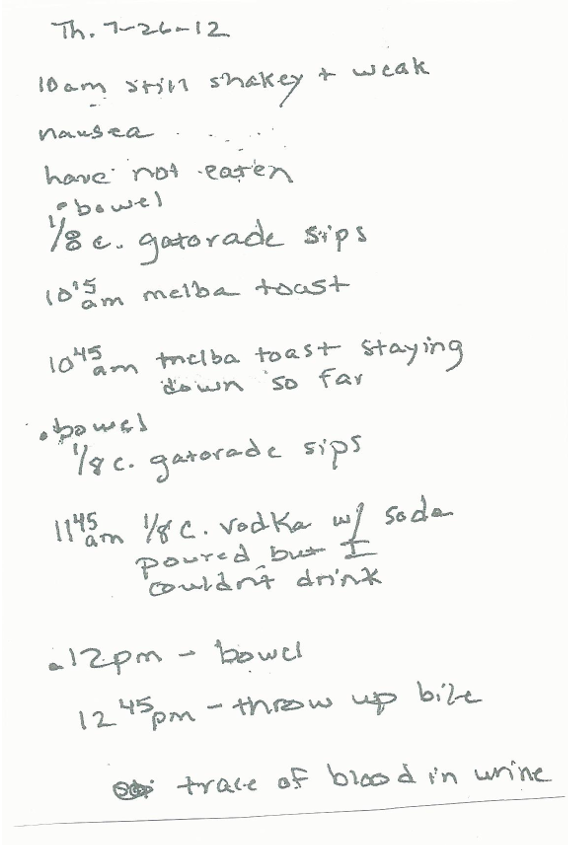 Th. 7-26-12
10am still shakey + weak
nausea
have not eaten
• bowel
1/8 c. gatorade sips
10 15 am melba toast
10 45 am melba toast staying
down so far
• bowel
1/8 c. gatorade sips
11 45 am 1/8 c. vodka w/ soda
poured but I
couldnt drink
• 12pm - bowel
12 45 pm - throw up bile
trace of blood in urine